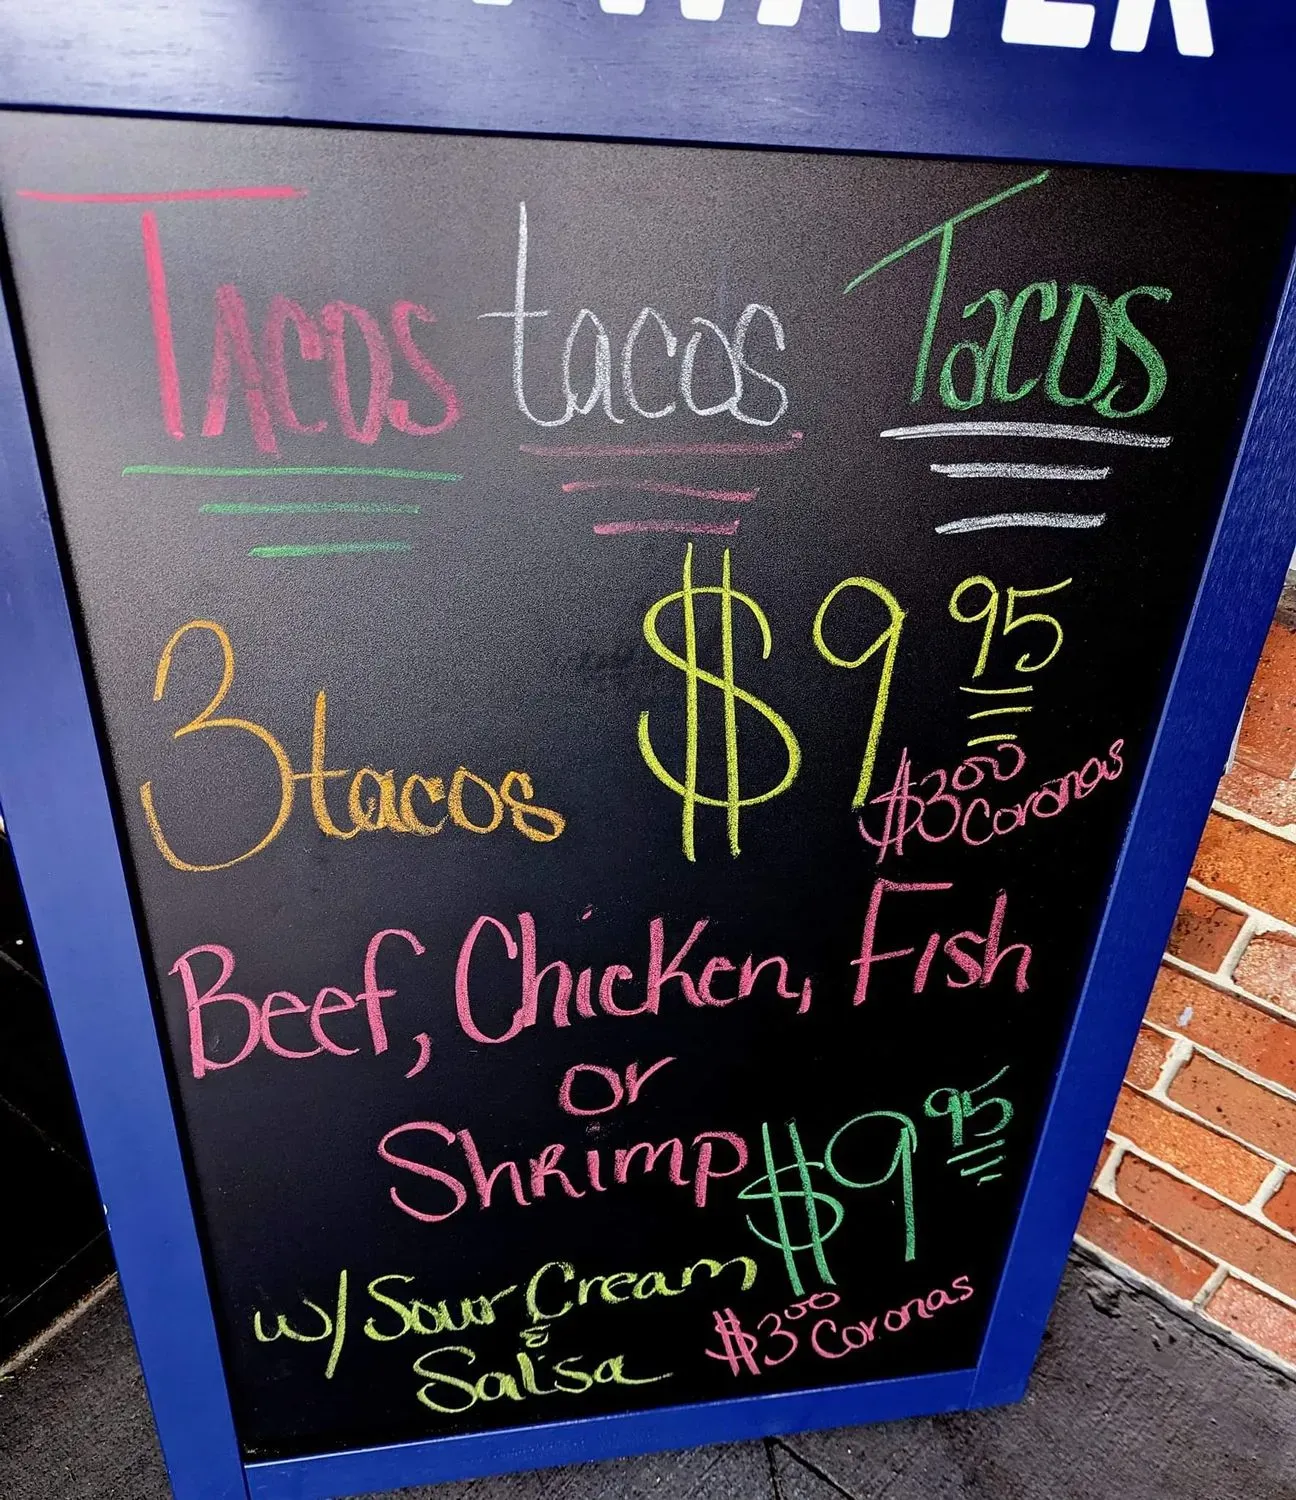 WATER
Tacos tacos Tacos
3 tacos $9.95
$3.00 Coronas
Beef, Chicken, Fish
or
Shrimp $9.95
w/ Sour Cream
&
Salsa
$3.00 Coronas